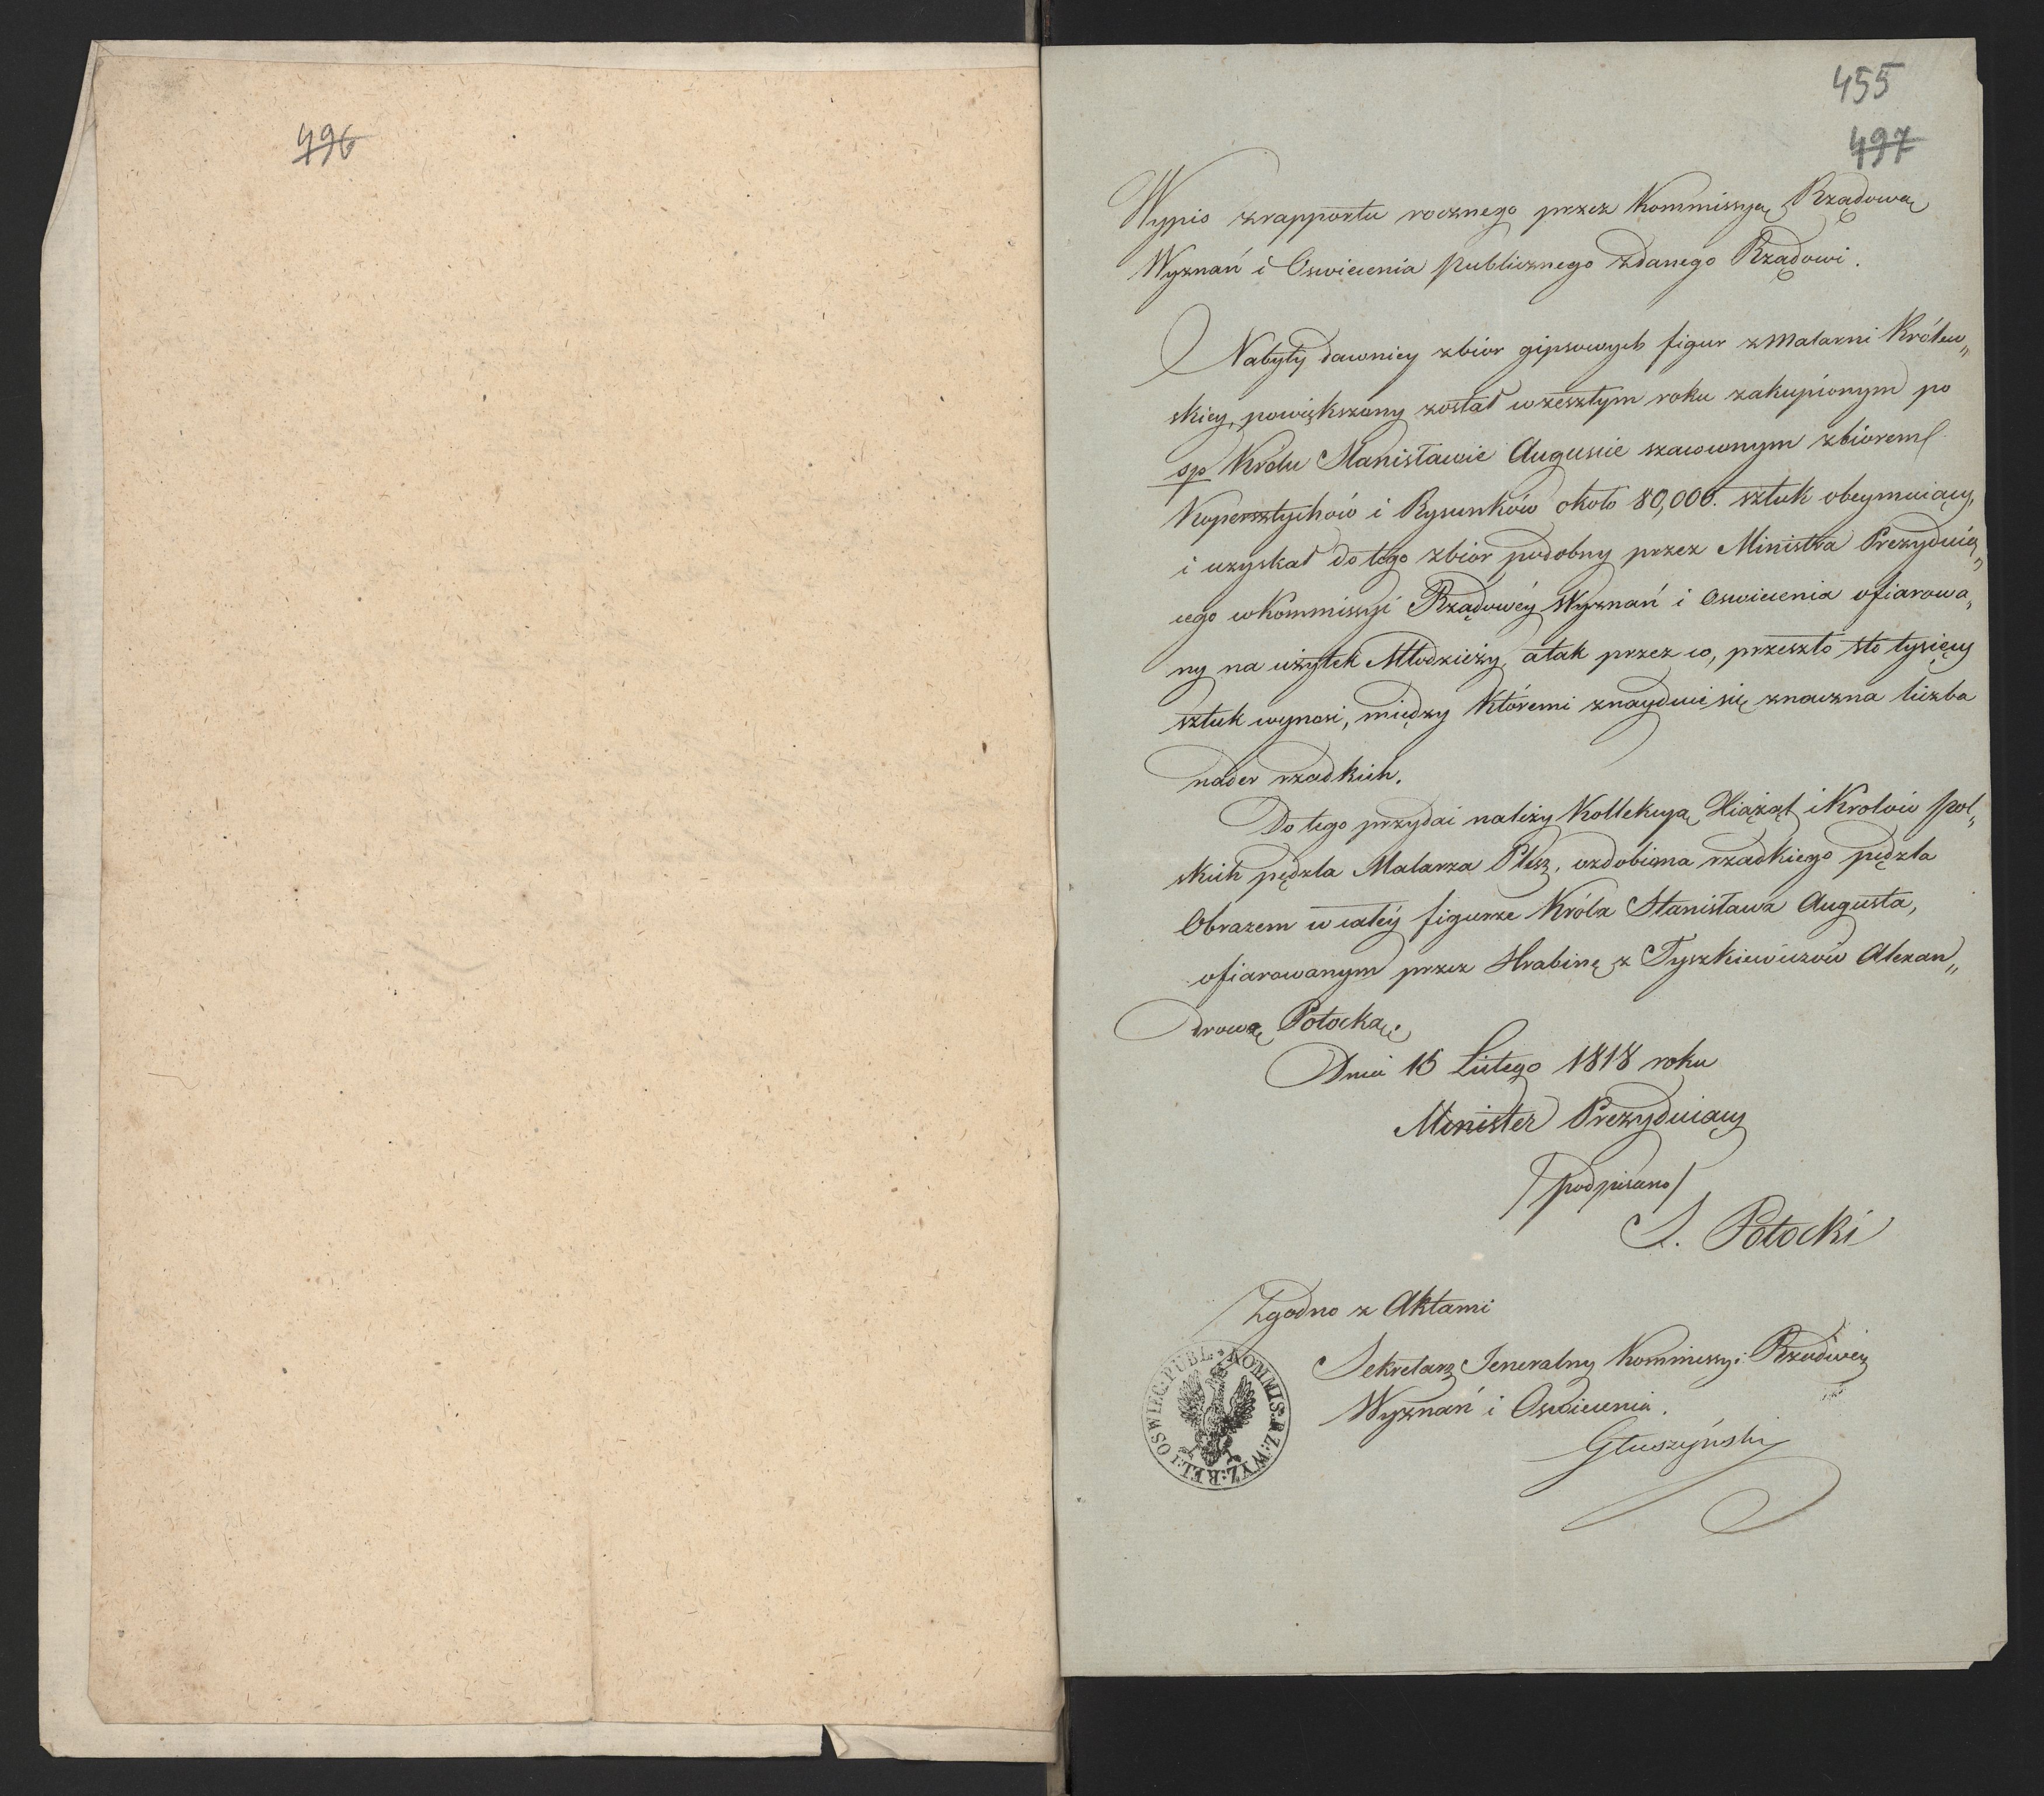 496
455
497
Wypis z rapportu rocznego przez Kommissyą Rządową
Wyznań i Oswiecenia publicznego zdanego Rządowi.
Nabyty dawniey zbior gipsowych figur z Malarni Królew„
skiey, powiększony został w zeszłym roku zakupionym po
sp Królu Stanisławie Auguscie szacownym zbiorem
Kopersztychów i Rysunków około 80,000. sztuk obeymuiący,
i uzyskał do tego zbior podobny przez Ministra Prezyduią„
cego w Kommissyi Rządowéy Wyznań i Oswiecenia ofiarowa„
ny na użytek Młodzieży, a tak przez co, przeszło sto tysięcy
sztuk wynosi, między któremi znayduie się znaczna liczba
nader rzadkich.
Do tego przydać należy Kollekcyą Xiążąt i Krolów pol„
skich pędzla Malarza Plesz, ozdobiona rzadkiego pędzla
Obrazem w całéy figurze Króla Stanisława Augusta,
ofiarowanym przez Hrabinę z Tyszkiewiczów Alexan„
drową Potocką.
Dnia 15 Lutego 1818 roku
Minister Prezyduiący
/podpisano/
S. Potocki
Zgodno z Aktami
Sekretarz Jeneralny Kommissyi Rządowéy
Wyznań i Oswiecenia.
Głuszyński
KOMMIS: RZ: WYZ: REL: I OSWIEC: PUBL: